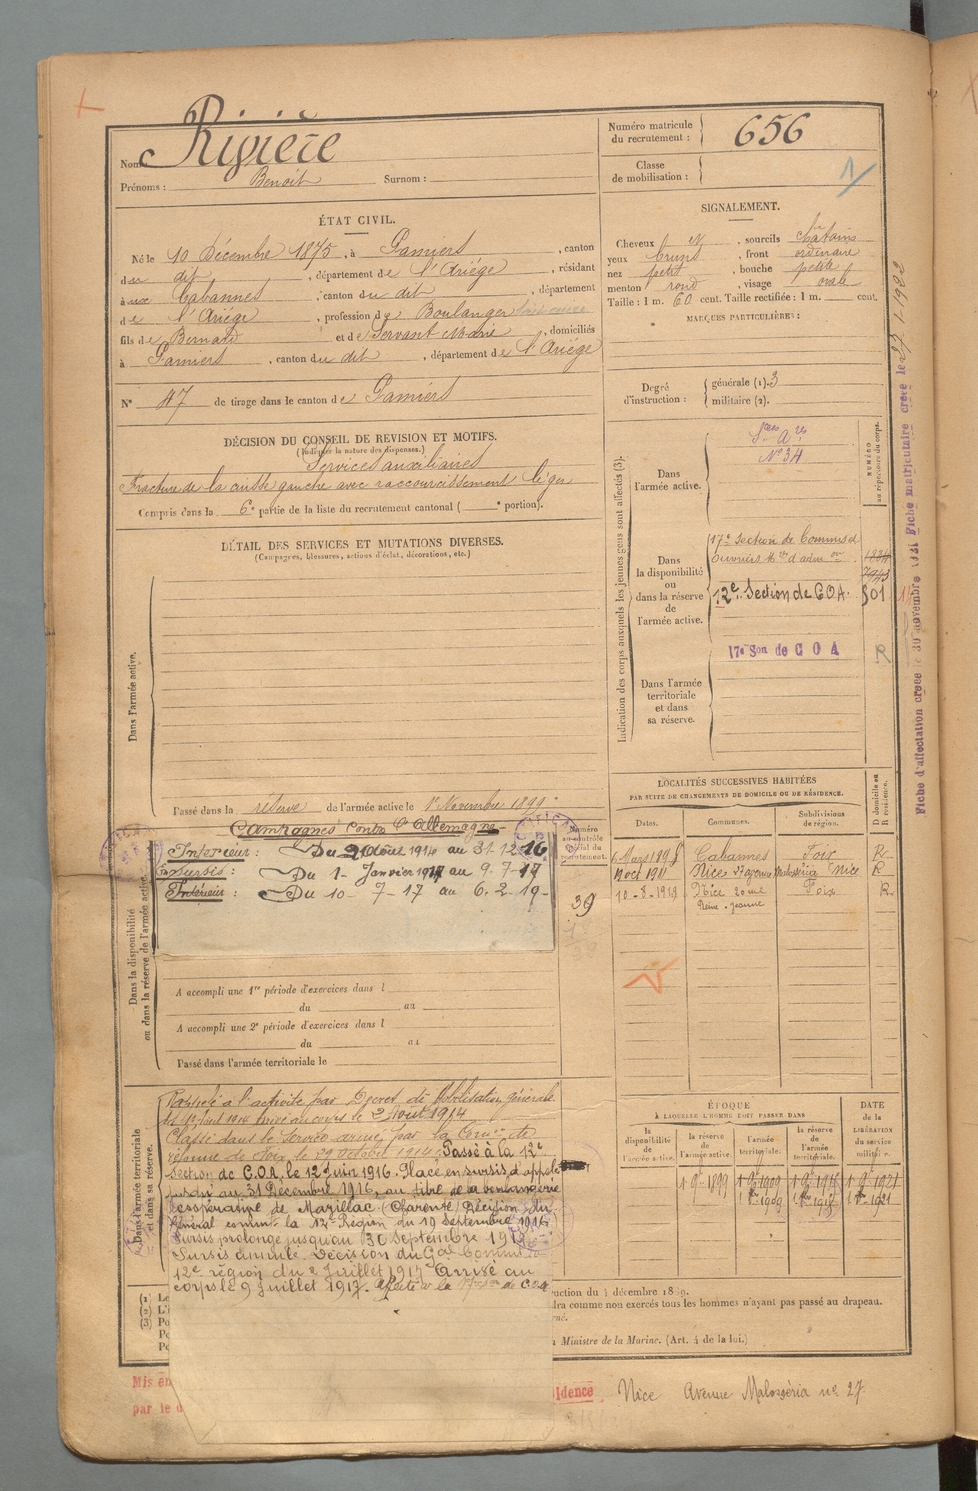 Nom: Rivière
Prénoms: Benoit Surnom:
Numéro matricule du recrutement: 656
Classe de mobilisation:
1
ÉTAT CIVIL.
Né le 10 Décembre 1875, à Pamiers, canton
du dit, département de l'Ariége, résidant
à aux Cabannes, canton du dit, département
de l'Ariége, profession de Boulanger
fils de Bernard et de Servant Marie, domiciliés
à Pamiers, canton du dit, département de l'Ariége
N° 47 de tirage dans le canton de Pamiers
DÉCISION DU CONSEIL DE REVISION ET MOTIFS.
(Indiquer la nature des dispenses.)
Services auxiliaires
Fracture de la cuisse gauche avec raccourcissement léger
Compris dans la 6e partie de la liste du recrutement cantonal ( e portion).
DÉTAIL DES SERVICES ET MUTATIONS DIVERSES.
(Campagnes, blessures, actions d'éclat, décorations, etc.)
Dans l'armée active.
Passé dans la réserve de l'armée active le 1er Novembre 1899
Campagnes contre l'Allemagne
Intérieur: Du 2 Août 1914 au 31-12-16
Sursis: Du 1- Janvier 1917 au 9-7-17
Intérieur: Du 10-7-17 au 6-2-19-
Dans la disponibilité
ou dans la réserve de l'armée active.
A accompli une 1re période d'exercices dans l
du au
A accompli une 2e période d'exercices dans l
du au
Passé dans l'armée territoriale le
Dans l'armée territoriale
et dans sa réserve.
Rappelé à l'activité par Décret de Mobilisation générale
du 1er Août 1914 arrivé au corps le 2 Août 1914
Classé dans le Service armé par la Comon de
réforme de Foix le 29 octobre 1914. Passé à la 12e
Section de C.O.A. le 12 Juin 1916. Placé en sursis d'appel
jusqu'au 31 Décembre 1916, au titre de la boulangerie
coopérative de Marillac (Charente) Décision du
Général comm. la 12e Région du 19 Septembre 1916
Sursis prolongé jusqu'au 30 Septembre 191
Sursis annulé Décision du Gal Comm
12e région du 2 Juillet 1917 Arrivé au
corps le 9 juillet 1917. Affecté à la 17e son de C.O.A
SIGNALEMENT.
Cheveux N, sourcils chatains
yeux bruns, front ordinaire
nez petit, bouche petite
menton rond, visage ovale
Taille: 1 m. 60 cent. Taille rectifiée: 1 m. cent.
MARQUES PARTICULIÈRES:
Degré d'instruction: générale (1). 3
militaire (2).
Indication des corps auxquels les jeunes gens sont affectés (3).
NUMÉRO au répertoire du corps.
Dans l'armée active.
Sces Ares
N° 34
Dans la disponibilité ou dans la réserve de l'armée active.
17e Section de Commis et
Ouvriers Mres d'adm on
1834
7943
12e Section de COA. 501
Dans l'armée territoriale et dans sa réserve.
17e Son de C O A
R
LOCALITÉS SUCCESSIVES HABITÉES
PAR SUITE DE CHANGEMENTS DE DOMICILE OU DE RÉSIDENCE.
Numéro au contrôle spécial du recrutement.
39
Dates. Communes. Subdivisions de région. D domicile ou R résidence.
6 Mars 1898 Cabannes Foix R
19 oct 1911 Nice 27 avenue Malosséria Nice R
10-8-1918 Nice 20 rue Foix R
Reine-Jeanne
ÉPOQUE
À LAQUELLE L'HOMME DOIT PASSER DANS
DATE de la LIBÉRATION du service militaire.
la disponibilité de l'armée active. la réserve de l'armée active. l'armée territoriale. la réserve de l'armée territoriale.
1 9bre 1899 1 9bre 1909 1 9bre 1915 1 9bre 1921
1 8bre 1909 1 8bre 1915 1 8bre 1921
(1) Le
(2) L'i
(3) Po
Po
Po
ruction du 4 décembre 1889.
dra comme non exercés tous les hommes n'ayant pas passé au drapeau.
Ministre de la Marine. (Art. 4 de la loi.)
Mis en
par le d
idence
Nice Avenue Malosséria n° 27
Fiche d'affectation créée le 30 novembre 1921 Fiche matriculaire créée le 27-1-1922